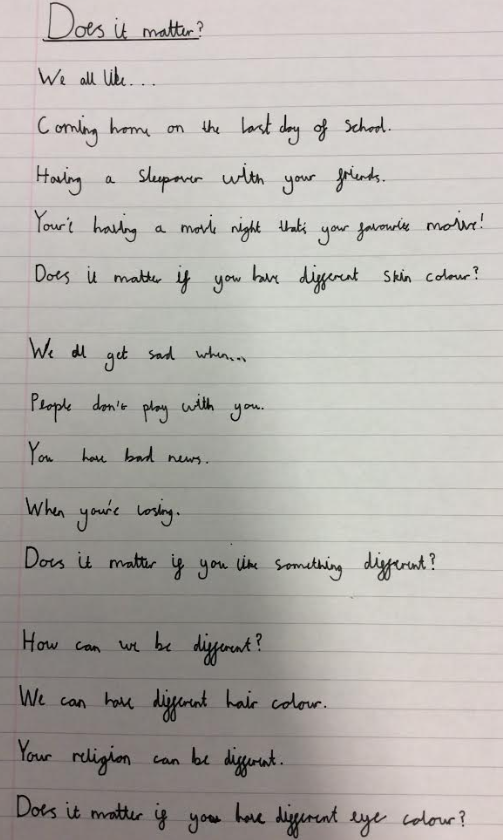 Does it matter?
We all like...
Coming home on the last day of school.
Having a sleepover with your friends.
You're having a movie night that's your favourite movie!
Does it matter if you have different skin colour?
We all get sad when....
People don't play with you.
You have bad news.
When you're losing.
Does it matter if you like something different?
How can we be different?
We can have different hair colour.
Your religion can be different.
Does it matter if you have different eye colour?